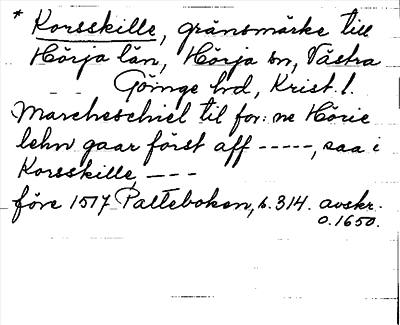 * Korsskille, gränsmärke till
Hörja län, Hörja sn, Västra
Göinge hd, Krist. l.
Marcheschiel til for: ne Hörie
lehn gaar först aff -----, saa i
Korsskille, ---
före 1517 Palteboken, s. 314. avskr.
o. 1650.